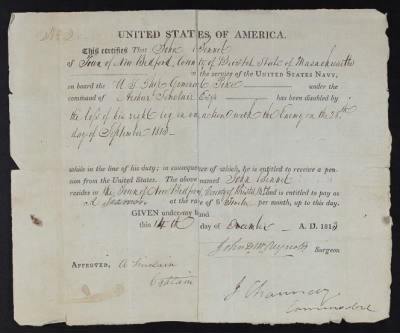 No 2.
UNITED STATES OF AMERICA.
This certifies That John Bennet
of Town of New Bedford, County of Bristol State of Massachusetts
in the service of the UNITED STATES NAVY,
on board the U. S. Ship General Pike under the
command of Arthur Sinclair Esqr has been disabled by
the loss of his right leg in an action with the enemy on the 28th
day of September 1813
while in the line of his duty; in consequence of which, he is entitled to receive a pen-
sion from the United States. The above named John Bennet
resides in the Town of New Bedford, County of Bristol & is entitled to pay as
a Seaman at the rate of 12 Dolls per month, up to this day.
GIVEN under my hand
this 14th day of December A. D. 1813
Surgeon
APPROVED, A Sinclair
Captain
I Chauncey
Commodore